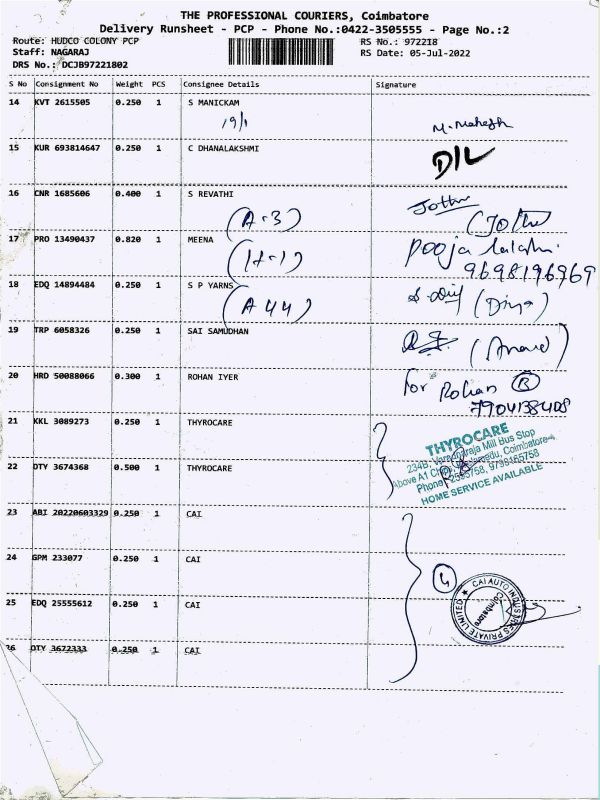 THE PROFESSIONAL COURIERS, Coimbatore
Delivery Runsheet - PCP - Phone No.:0422-3505555 - Page No.:2
Route: HUDCO COLONY PCP RS No.: 972218
Staff: NAGARAJ RS Date: 05-Jul-2022
DRS No.: DCJB97221802
S No Consignment No Weight PCS Consignee Details Signature
14 KVT 2615505 0.250 1 S MANICKAM
19/1 M. Mahesh
15 KUR 693814647 0.250 1 C DHANALAKSHMI
D/L
16 CNR 1685606 0.400 1 S REVATHI
(A-3) Jothi (Jothi
17 PRO 13490437 0.820 1 MEENA Pooja
(H-1) 9698196969
18 EDQ 14894484 0.250 1 S P YARNS (Divya)
(A 44)
19 TRP 6058326 0.250 1 SAI SAMUDHAN
(Anand)
20 HRD 50088066 0.300 1 ROHAN IYER For Rohan
7904138408
21 KKL 3089273 0.250 1 THYROCARE
THYROCARE
234B, Mill Bus Stop
Above A1 Coimbatore-4,
Phone: 9798165758
HOME SERVICE AVAILABLE
22 DTY 3674368 0.500 1 THYROCARE
23 ABI 20220603329 0.250 1 CAI
24 GPM 233077 0.250 1 CAI
4
CAI AUTO INDUSTRIES PRIVATE LIMITED
Coimbatore
25 EDQ 25555612 0.250 1 CAI
26 DTY 3672333 0.250 1 CAI